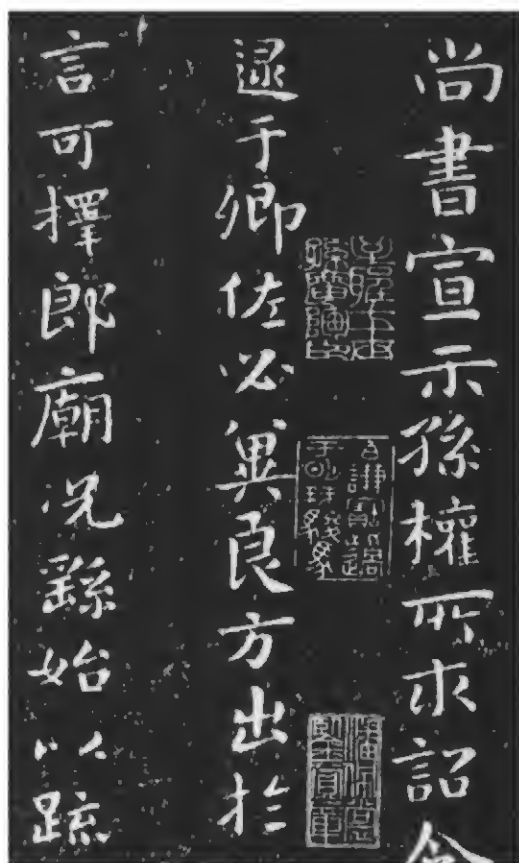 尚書宣示孫權所求詔令
逮于卿佐必冀良方出於
言可擇郎廟况繇始以疏